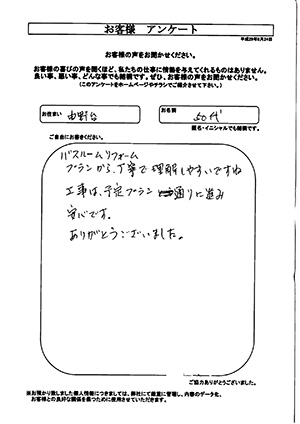 お客様 アンケート
平成29年6月24日
お客様の声をお聞かせください。
お客様の喜びの声を聞くほど、私たちの仕事に情熱を与えてくれるものはありません。
良い事、悪い事、どんな事でも結構です。ぜひ、お客様の声をお聞かせください。
(このアンケートをホームページやチラシでご紹介させて下さい。)
お住まい 由野台
お名前 50代
匿名・イニシャルでも結構です。
ご自由にお書きください。
バスルームリフォーム
プランから、丁寧で理解しやすいですね
工事は、予定プラン通りに進み
安心です。
ありがとうございました。
ご協力ありがとうございました。
※お預かり致しました個人情報につきましては、弊社にて厳重に管理し、内容のデータ化、
お客様との良好な関係を築くために使用させていただきます。